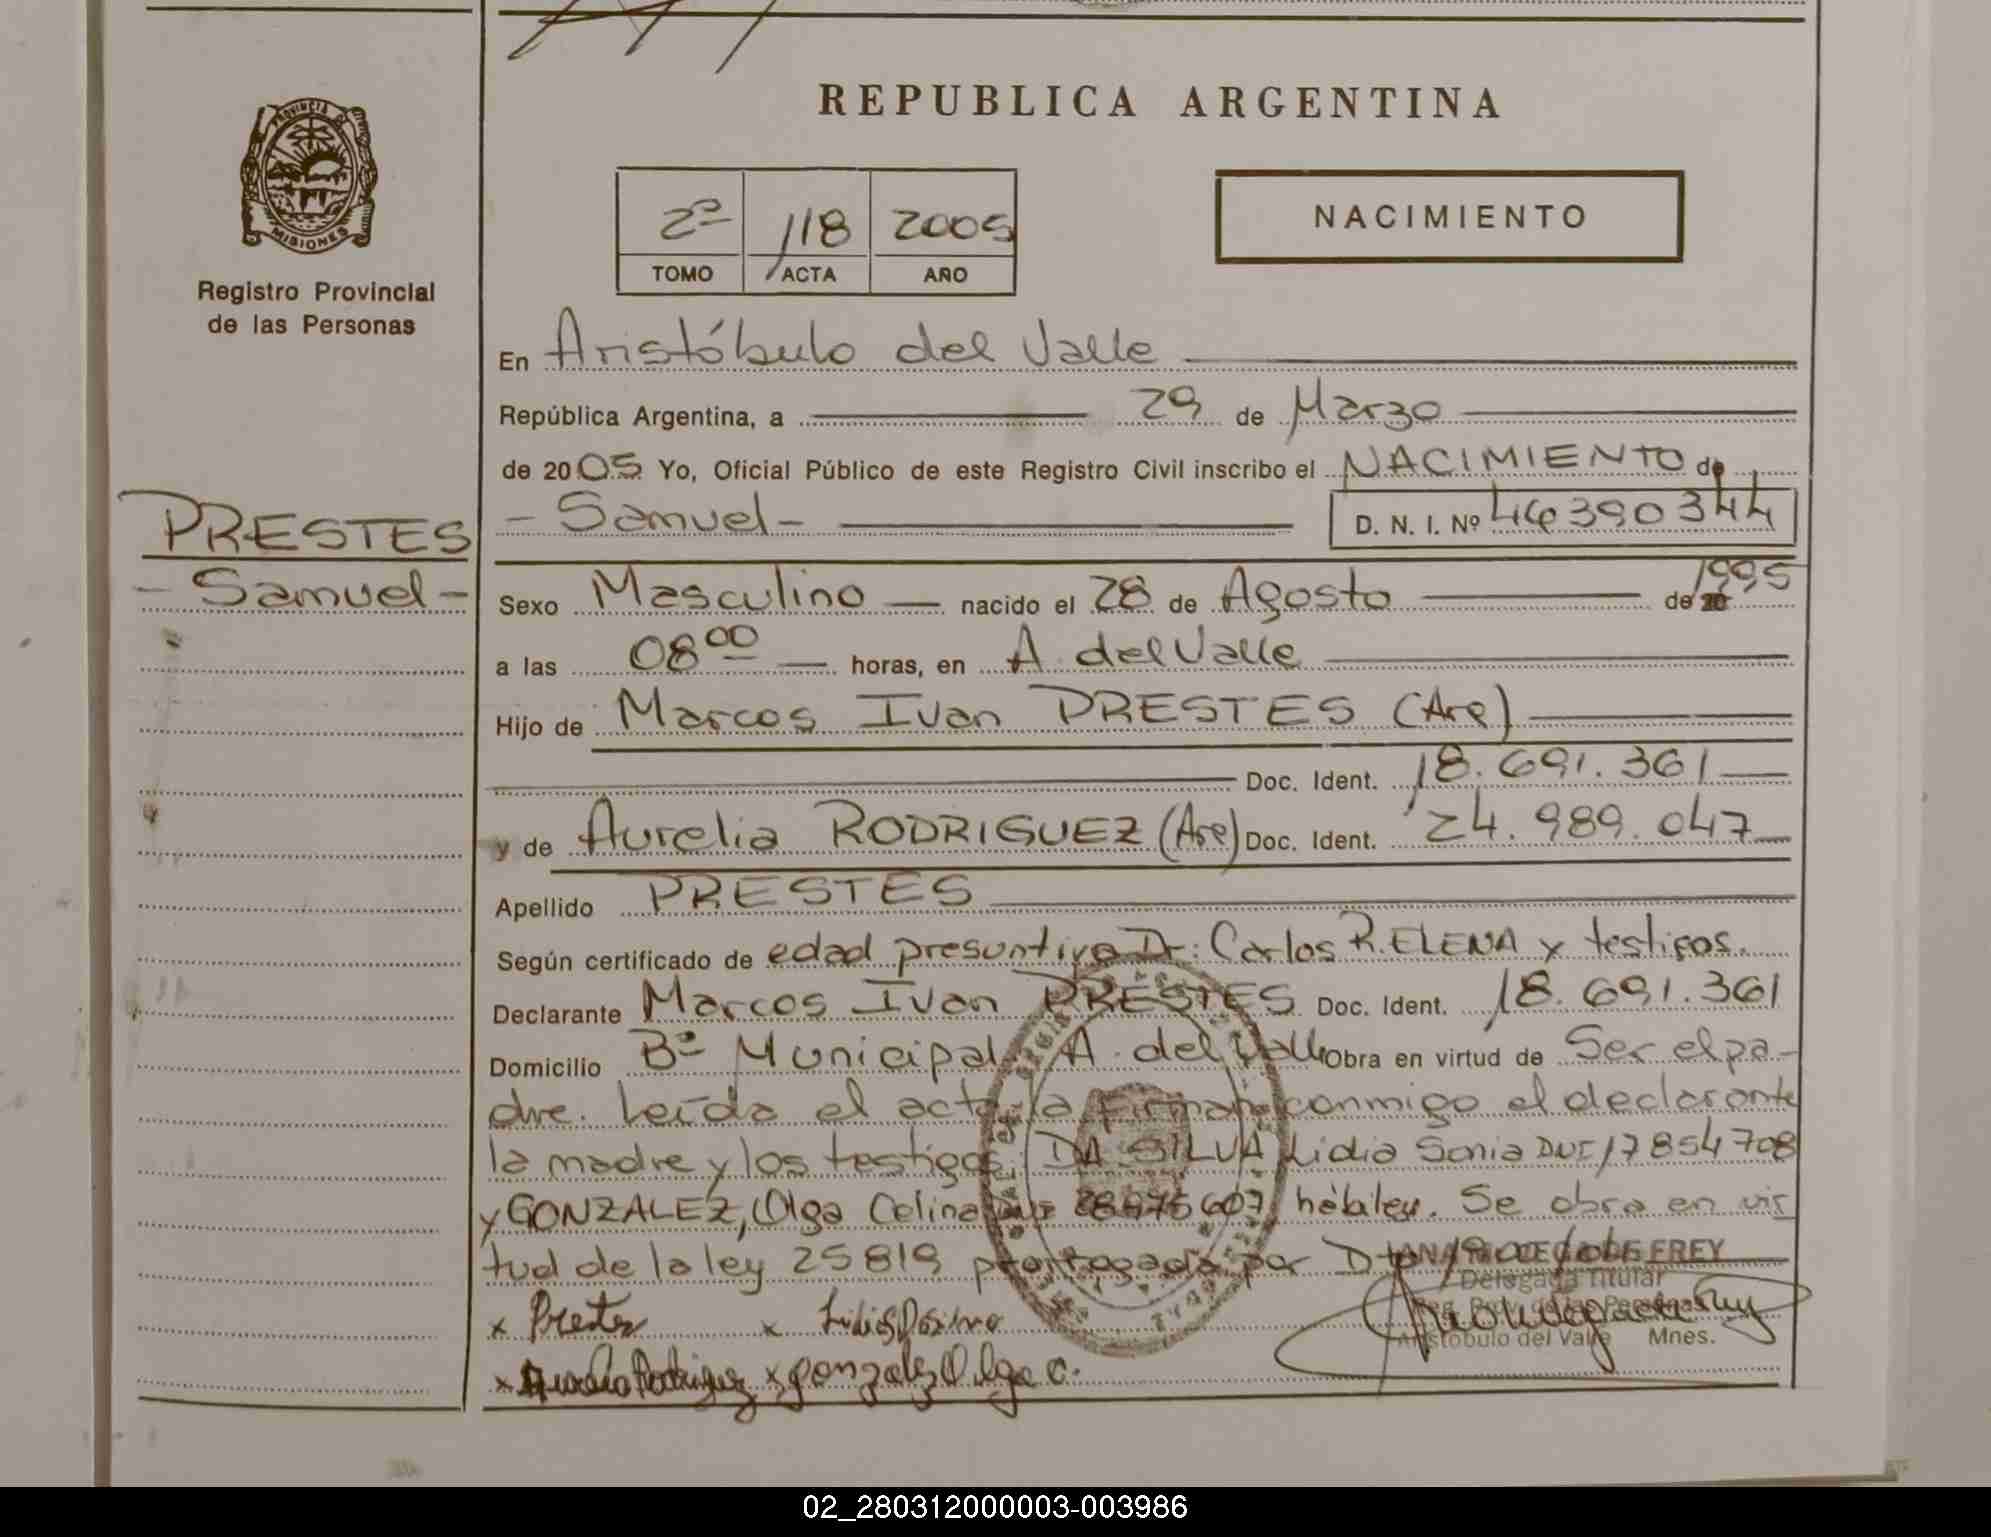 REPUBLICA ARGENTINA
PROVINCIA DE
MISIONES
Registro Provincial
de las Personas
2º 118 2005
TOMO ACTA AÑO
NACIMIENTO
En Aristóbulo del Valle
República Argentina, a 29 de Marzo
de 2005 Yo, Oficial Público de este Registro Civil inscribo el NACIMIENTO de
PRESTES
- Samuel -
- Samuel - D. N. I. Nº 46390344
Sexo Masculino nacido el 28 de Agosto de 1995
a las 08 00 horas, en A. del Valle
Hijo de Marcos Ivan PRESTES (Arg)
Doc. Ident. 18.691.361
y de Aurelia RODRIGUEZ (Arg) Doc. Ident. 24.989.047
Apellido PRESTES
Según certificado de edad presuntiva Dr. Carlos R. ELENA y testigos.
Declarante Marcos Ivan PRESTES Doc. Ident. 18.691.361
Domicilio Bº Municipal A. del Valle Obra en virtud de Ser el pa-
dre. Leída el acta la firman conmigo el declarante
la madre y los testigos: DA SILVA Lidia Sonia DNI 17854708
y GONZALEZ, Olga Celina hábiles. Se obra en vir
tud de la ley 25819 prorrogada por
FREY
Delegada Titular
Reg. Prov. de las Personas
Aristóbulo del Valle Mnes.
x Prestes x
x Aurelia Rodriguez x gonzalez Olga C.
02_280312000003-003986